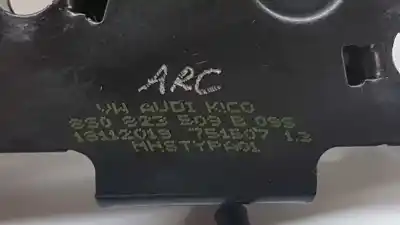 ARC
VW AUDI KICO
8S0 823 509 B 09S
18112019 751507 1.3
HHSTYPA01